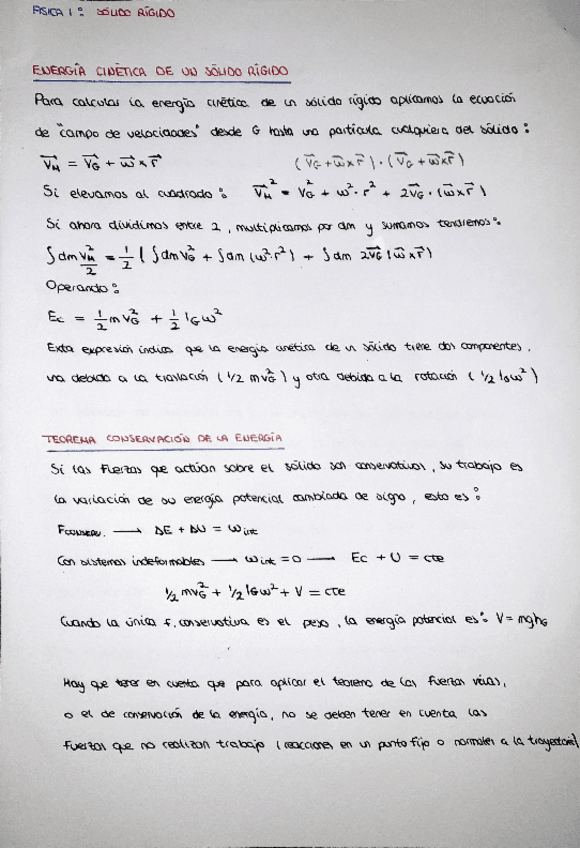 FISICA I: SÓLIDO RÍGIDO
ENERGÍA CINÉTICA DE UN SÓLIDO RÍGIDO
Para calcular la energía cinética de un sólido rígido aplicamos la ecuación
de "campo de velocidades" desde G hasta una partícula cualquiera del sólido:
V⃗_M = V⃗_G + ω⃗ × r⃗ (V⃗_G + ω⃗ × r⃗) · (V⃗_G + ω⃗ × r⃗)
Si elevamos al cuadrado: V⃗_M² = V_G² + ω² · r² + 2V⃗_G · (ω⃗ × r⃗)
Si ahora dividimos entre 2, multiplicamos por dm y sumamos tendremos:
∫dm V_M²/2 = 1/2 (∫dm V_G² + ∫dm (ω² · r²) + ∫dm 2V⃗_G (ω⃗ × r⃗)
Operando:
Ec = 1/2 m V_G² + 1/2 I_G ω²
Esta expresión indica que la energía cinética de un sólido tiene dos componentes,
una debida a la traslación (1/2 m v_G²) y otra debida a la rotación (1/2 I_G ω²)
TEOREMA CONSERVACIÓN DE LA ENERGÍA
Si las fuerzas que actúan sobre el sólido son conservativas, su trabajo es
la variación de su energía potencial cambiada de signo, esto es:
F_CONSERV. → ΔE + ΔU = W_int
Con sistemas indeformables → W_int = 0 → Ec + U = cte
1/2 m v_G² + 1/2 I_G ω² + V = cte
Cuando la única f. conservativa es el peso, la energía potencial es: V = mgh_G
Hay que tener en cuenta que para aplicar el teorema de las fuerzas vivas,
o el de conservación de la energía, no se deben tener en cuenta las
fuerzas que no realizan trabajo (reacciones en un punto fijo o normales a la trayectoria)